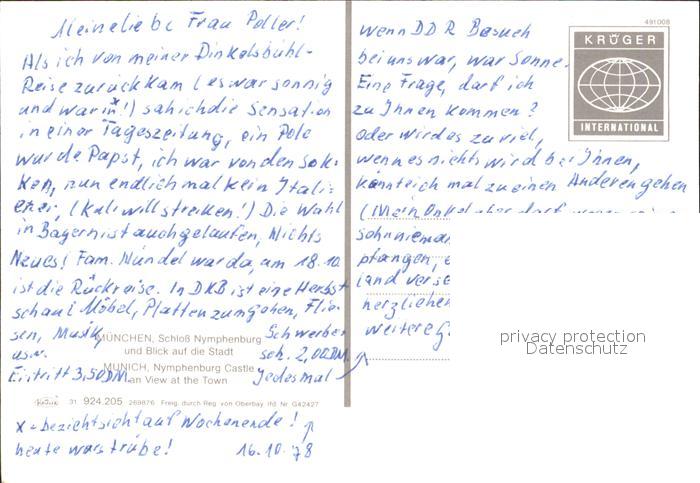 Meine liebe Frau Poller!
Als ich von meiner Dinkelsbühl-
Reise zurückkam (es war sonnig
und warm x!) sah ich die Sensation
in einer Tageszeitung, ein Pole
wurde Papst, ich war von den Sok-
ken, nun endlich mal kein Itali-
ener, (Kuli will streiken!) Die Wahl
in Bayern ist auch gelaufen, Nichts
Neues! Fam. Nündel war da, am 18.10.
ist die Rückreise. In DKB ist eine Herbst
schau (Möbel, Platten zum gehen, Flie-
sen, Musik, Schwerbe
usw. sch. 2,00 DM
Eintritt 3,50 DM. Jedesmal
x = bezieht sich auf Wochenende!
heute wars trübe! 16.10.78
MÜNCHEN, Schloß Nymphenburg
und Blick auf die Stadt
MUNICH, Nymphenburg Castle
an View at the Town
31 924.205 269876 Freig. durch Reg. von Oberbay. lfd. Nr. G42427
wenn DDR Besuch
bei uns war, war Sonne.
Eine Frage, darf ich
zu Ihnen kommen?
oder wird es zu viel,
wenn es nichts wird bei Ihnen,
könnte ich mal zu einen Anderen gehen
(Mein Onkel aber darf
sohn nieman
pfangen,
land verse
herzlichen
weitere G
491008
KRÜGER
INTERNATIONAL
privacy protection
Datenschutz